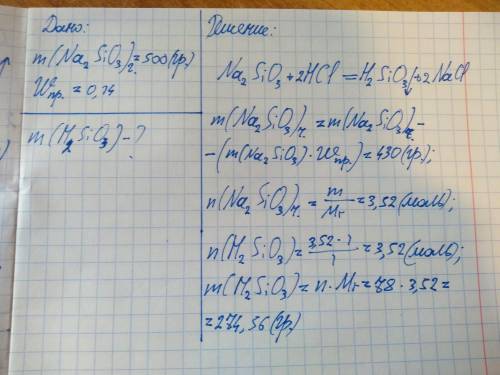 Дано:
m(Na₂SiO₃)г.=500(гр.)
Wпр.=0,14
m(H₂SiO₃)-?
Решение:
Na₂SiO₃+2HCl=H₂SiO₃↓+2NaCl
m(Na₂SiO₃)ч.=m(Na₂SiO₃)г.-
-(m(Na₂SiO₃)·Wпр.)=430(гр.);
n(Na₂SiO₃)ч.=m/Mr=3,52(моль);
n(H₂SiO₃)=3,52·1/1=3,52(моль);
m(H₂SiO₃)=n·Mr=78·3,52=
=274,56(гр.)